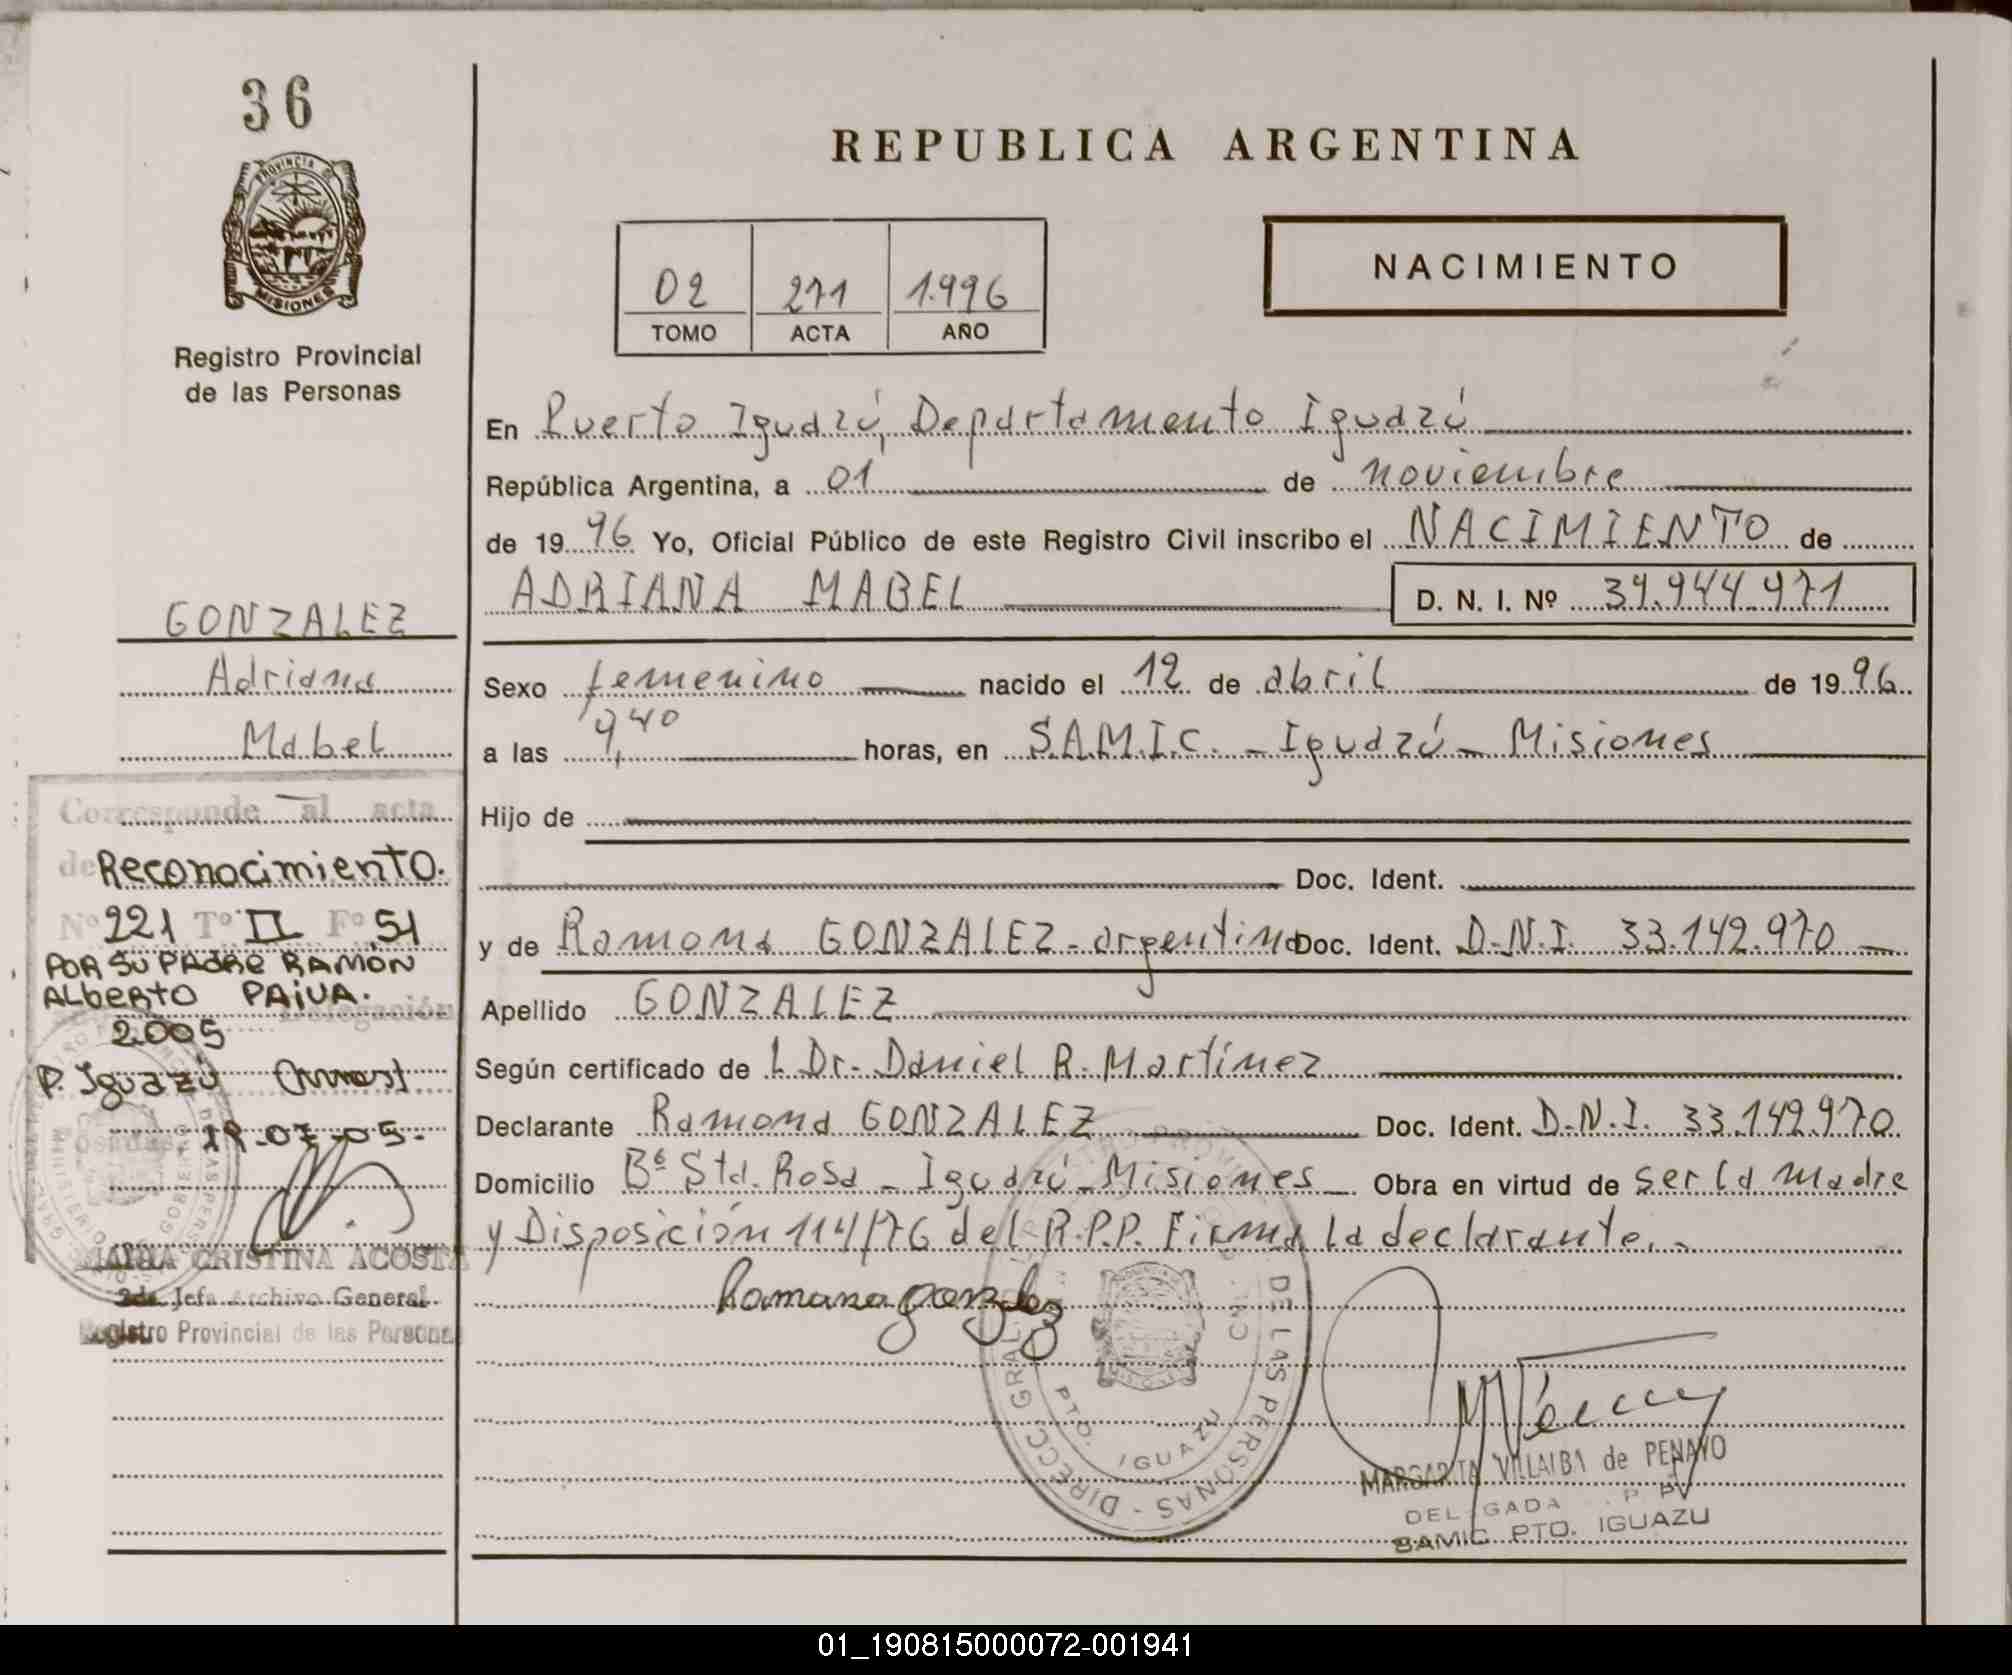 36
PROVINCIA DE
MISIONES
Registro Provincial
de las Personas
REPUBLICA ARGENTINA
02 271 1.996
TOMO ACTA AÑO
NACIMIENTO
En Puerto Iguazú, Departamento Iguazú
República Argentina, a 01 de noviembre
de 19 96 Yo, Oficial Público de este Registro Civil inscribo el NACIMIENTO de
ADRIANA MABEL D. N. I. Nº 39.944.971
Sexo femenino nacido el 12 de abril de 19 96
a las 9,40 horas, en S.A.M.I.C. - Iguazú - Misiones
Hijo de
Doc. Ident.
y de Ramona GONZALEZ - argentina Doc. Ident. D.N.I. 33.142.970
Apellido GONZALEZ
Según certificado de L Dr. Daniel R. Martínez
Declarante Ramona GONZALEZ Doc. Ident. D.N.I. 33.142.970
Domicilio Bº Sta. Rosa - Iguazú - Misiones Obra en virtud de ser la madre
y Disposición 114/76 del R.P.P. Firma la declarante.
Ramona gonzalez
DIRECC. GRAL. DE LAS PERSONAS
PTO. IGUAZU
MARGARITA VILLALBA de PENAYO
DELEGADA
SAMIC PTO. IGUAZU
GONZALEZ
Adriana
Mabel
Corresponde al acta
de Reconocimiento.
Nº 221 Tº II Fº 51
POR SU PADRE RAMÓN
ALBERTO PAIVA.
Delegación
2.005
P. Iguazú (Mnes)
19-07-05.
MARIA CRISTINA ACOSTA
2da. Jefa Archivo General
Registro Provincial de las Personas
01_190815000072-001941